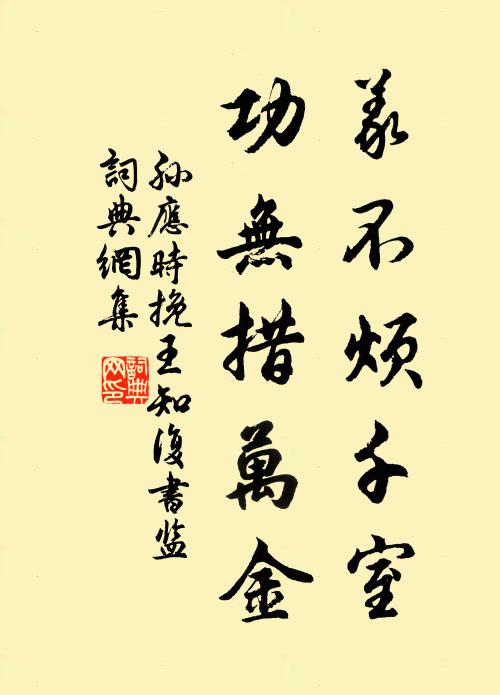 義不煩千室
功無措萬金
孫應時挽王知復書监
詞典網集
詞典网印